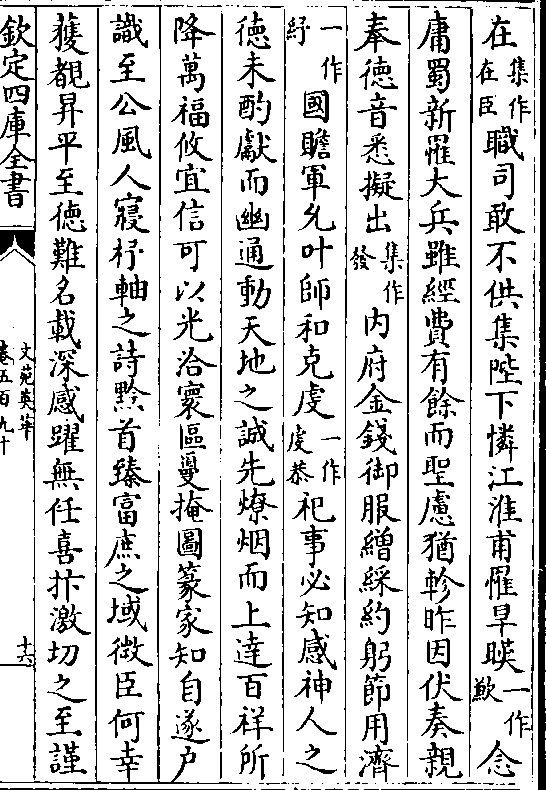 在集作在臣職司敢不供集陛下憐江淮甫罹旱暵一作歉念
庸蜀新罷大兵雖經費有餘而聖慮猶軫昨因伏奏親
奉德音悉擬出集作發内府金錢御服繒綵約躬節用濟
一作紓國贍軍允叶師和克虔一作虔恭祀事必知感神人之
徳未酌獻而幽通動天地之誠先燎烟而上達百祥所
降萬福攸宜信可以光洽寰區夐掩圖篆家知自遂户
識至公風人寢杼軸之詩黔首臻富庶之域微臣何幸
獲覩昇平至徳難名載深感躍無任喜抃激切之至謹
欽定四庫全書
文苑英華
卷五百九十
十六